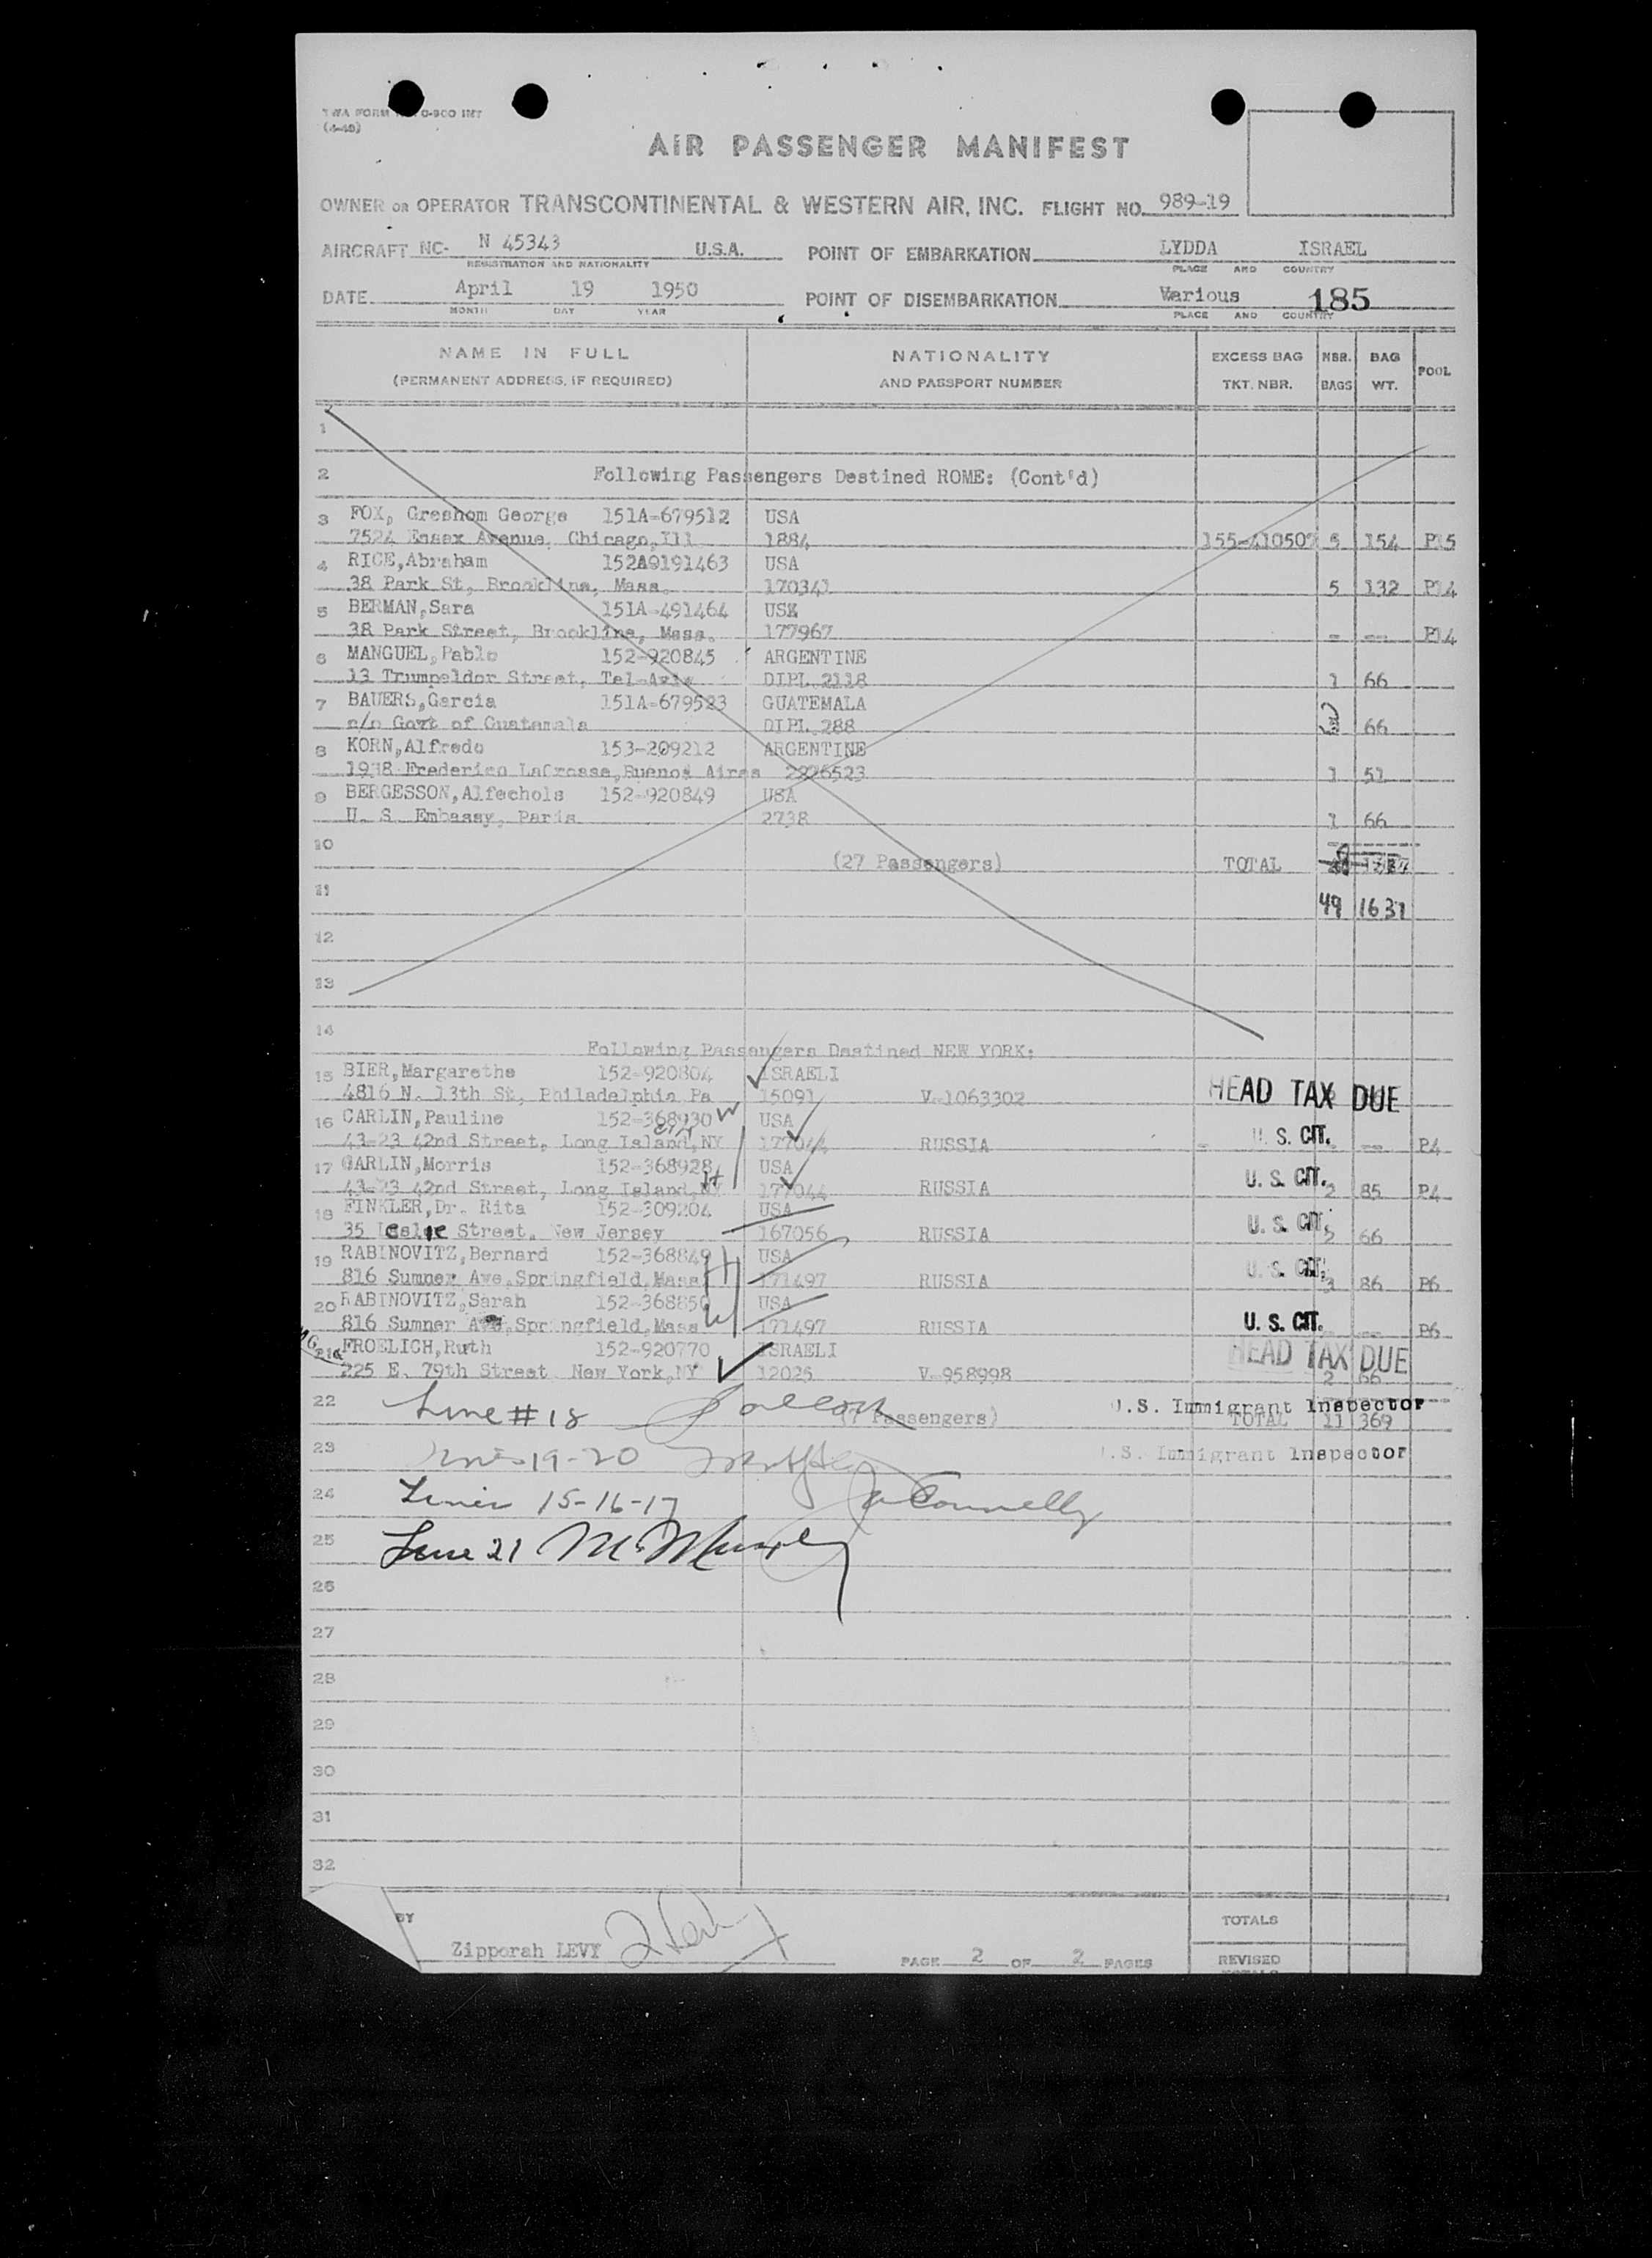 TWA FORM 0-900 INT
(4-48)
AIR PASSENGER MANIFEST
OWNER OR OPERATOR TRANSCONTINENTAL & WESTERN AIR, INC. FLIGHT NO. 989-19
AIRCRAFT NC- N 45343 U.S.A. POINT OF EMBARKATION LYDDA ISRAEL
REGISTRATION AND NATIONALITY PLACE AND COUNTRY
DATE April 19 1950 POINT OF DISEMBARKATION Various 185
MONTH DAY YEAR PLACE AND COUNTRY
NAME IN FULL NATIONALITY EXCESS BAG NBR. BAG POOL
(PERMANENT ADDRESS, IF REQUIRED) AND PASSPORT NUMBER TKT. NBR. BAGS WT.
1
2 Following Passengers Destined ROME: (Cont'd)
3 FOX, Greshom George 151A-679512 USA
7524 Essex Avenue, Chicago, Ill 1884 155-410507 5 154 P15
4 RICE, Abraham 152A9191463 USA
38 Park St, Brookline, Mass. 170341 5 132 P14
5 BERMAN, Sara 151A-491464 USA
38 Park Street, Brookline, Mass. 177967 - -- P14
6 MANGUEL, Pablo 152-920845 ARGENTINE
13 Trumpeldor Street, Tel-Aviv DIPL 2118 1 66
7 BAUERS, Garcia 151A-679523 GUATEMALA
c/o Govt of Guatemala DIPL 288 66
8 KORN, Alfredo 153-209212 ARGENTINE
1938 Frederico LaCrosse, Buenos Aires 2826523 1 51
9 BERGESSON, Alfechols 152-920849 USA
U. S. Embassy, Paris 2738 1 66
10 (27 Passengers) TOTAL
11 49 1637
12
13
14 Following Passengers Destined NEW YORK:
15 BIER, Margarethe 152-920804 ISRAELI
4816 N. 13th St, Philadelphia Pa 15091 V-1063302 HEAD TAX DUE
16 CARLIN, Pauline 152-368930 W USA
43-23 42nd Street, Long Island, NY 177044 RUSSIA U. S. CIT. -- P4
17 GARLIN, Morris 152-368928 H USA
43-23 42nd Street, Long Island, NY 177044 RUSSIA U. S. CIT. 2 85 P4
18 FINKLER, Dr. Rita 152-309204 USA
35 Leslie Street, New Jersey 167056 RUSSIA U. S. CIT. 2 66
19 RABINOVITZ, Bernard 152-368849 H USA
816 Sumner Ave, Springfield, Mass 171497 RUSSIA U. S. CIT. 3 86 P6
20 RABINOVITZ, Sarah 152-368850 W USA
816 Sumner Ave, Springfield, Mass 171497 RUSSIA U. S. CIT. -- P6
21 FROELICH, Ruth 152-920770 ISRAELI
225 E. 79th Street New York, NY 12025 V-958998 HEAD TAX DUE 2 66
22 Line #18 (7 Passengers) U.S. Immigrant Inspector TOTAL 11 369
23 Lines 19-20 U.S. Immigrant Inspector
24 Lines 15-16-17 Connelly
25 Line 21
26
27
28
29
30
31
32
BY TOTALS
Zipporah LEVY PAGE 2 OF 2 PAGES REVISED